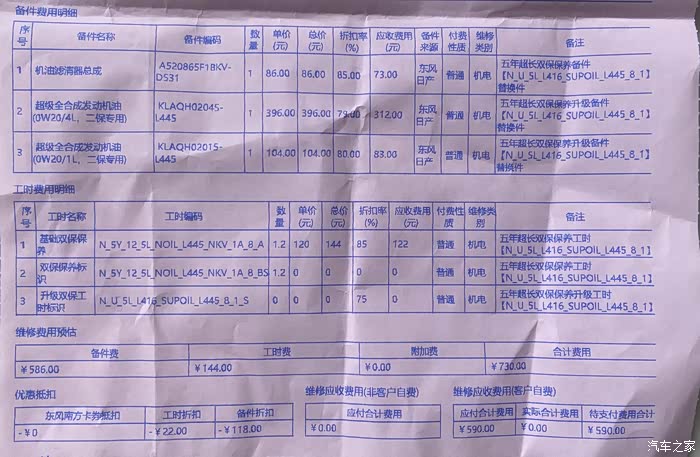 备件费用明细
序号 备件名称 备件编码 数量 单价(元) 总价(元) 折扣率(%) 应收费用(元) 备件来源 付费性质 维修类别 备注
1 机油滤清器总成 A520865F1BKV-DS31 1 86.00 86.00 85.00 73.00 东风日产 普通 机电 五年超长双保保养备件【N_U_5L_L416_SUPOIL_L445_8_1】替换件
2 超级全合成发动机油(0W20/4L,二保专用) KLAQH02045-L445 1 396.00 396.00 79.00 312.00 东风日产 普通 机电 五年超长双保保养升级备件【N_U_5L_L416_SUPOIL_L445_8_1】替换件
3 超级全合成发动机油(0W20/1L,二保专用) KLAQH02015-L445 1 104.00 104.00 80.00 83.00 东风日产 普通 机电 五年超长双保保养升级备件【N_U_5L_L416_SUPOIL_L445_8_1】替换件
工时费用明细
序号 工时名称 工时编码 数量 单价(元) 总价(元) 折扣率(%) 应收费用(元) 付费性质 维修类别 备注
1 基础双保保养 N_5Y_12_5L_NOIL_L445_NKV_1A_8_A 1.2 120 144 85 122 普通 机电 五年超长双保保养工时【N_U_5L_L416_SUPOIL_L445_8_1】
2 双保保养标识 N_5Y_12_5L_NOIL_L445_NKV_1A_8_BS 1.2 0 0 0 0 普通 机电 五年超长双保保养工时【N_U_5L_L416_SUPOIL_L445_8_1】
3 升级双保工时标识 N_U_5L_L416_SUPOIL_L445_8_1_S 0 0 0 75 0 普通 机电 五年超长双保保养升级工时【N_U_5L_L416_SUPOIL_L445_8_1】
维修费用预估
备件费 工时费 附加费 合计费用
¥586.00 ¥144.00 ¥0.00 ¥730.00
优惠抵扣 维修应收费用(非客户自费) 维修应收费用(客户自费)
东风南方卡券抵扣 工时折扣 备件折扣 应付合计费用 应付合计费用 实际合计费用 待支付费用合计
-¥0 -¥22.00 -¥118.00 ¥0.00 ¥590.00 ¥0.00 ¥590.00
汽车之家